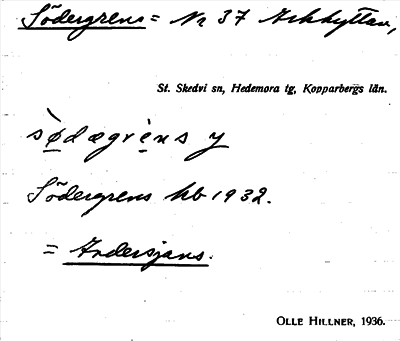 Södergrens = Nr 37 Arkhyttan,
St. Skedvi sn, Hedemora tg, Kopparbergs län.
sødægrens y
Södergrens hb 1932.
= Andersjans.
OLLE HILLNER, 1936.